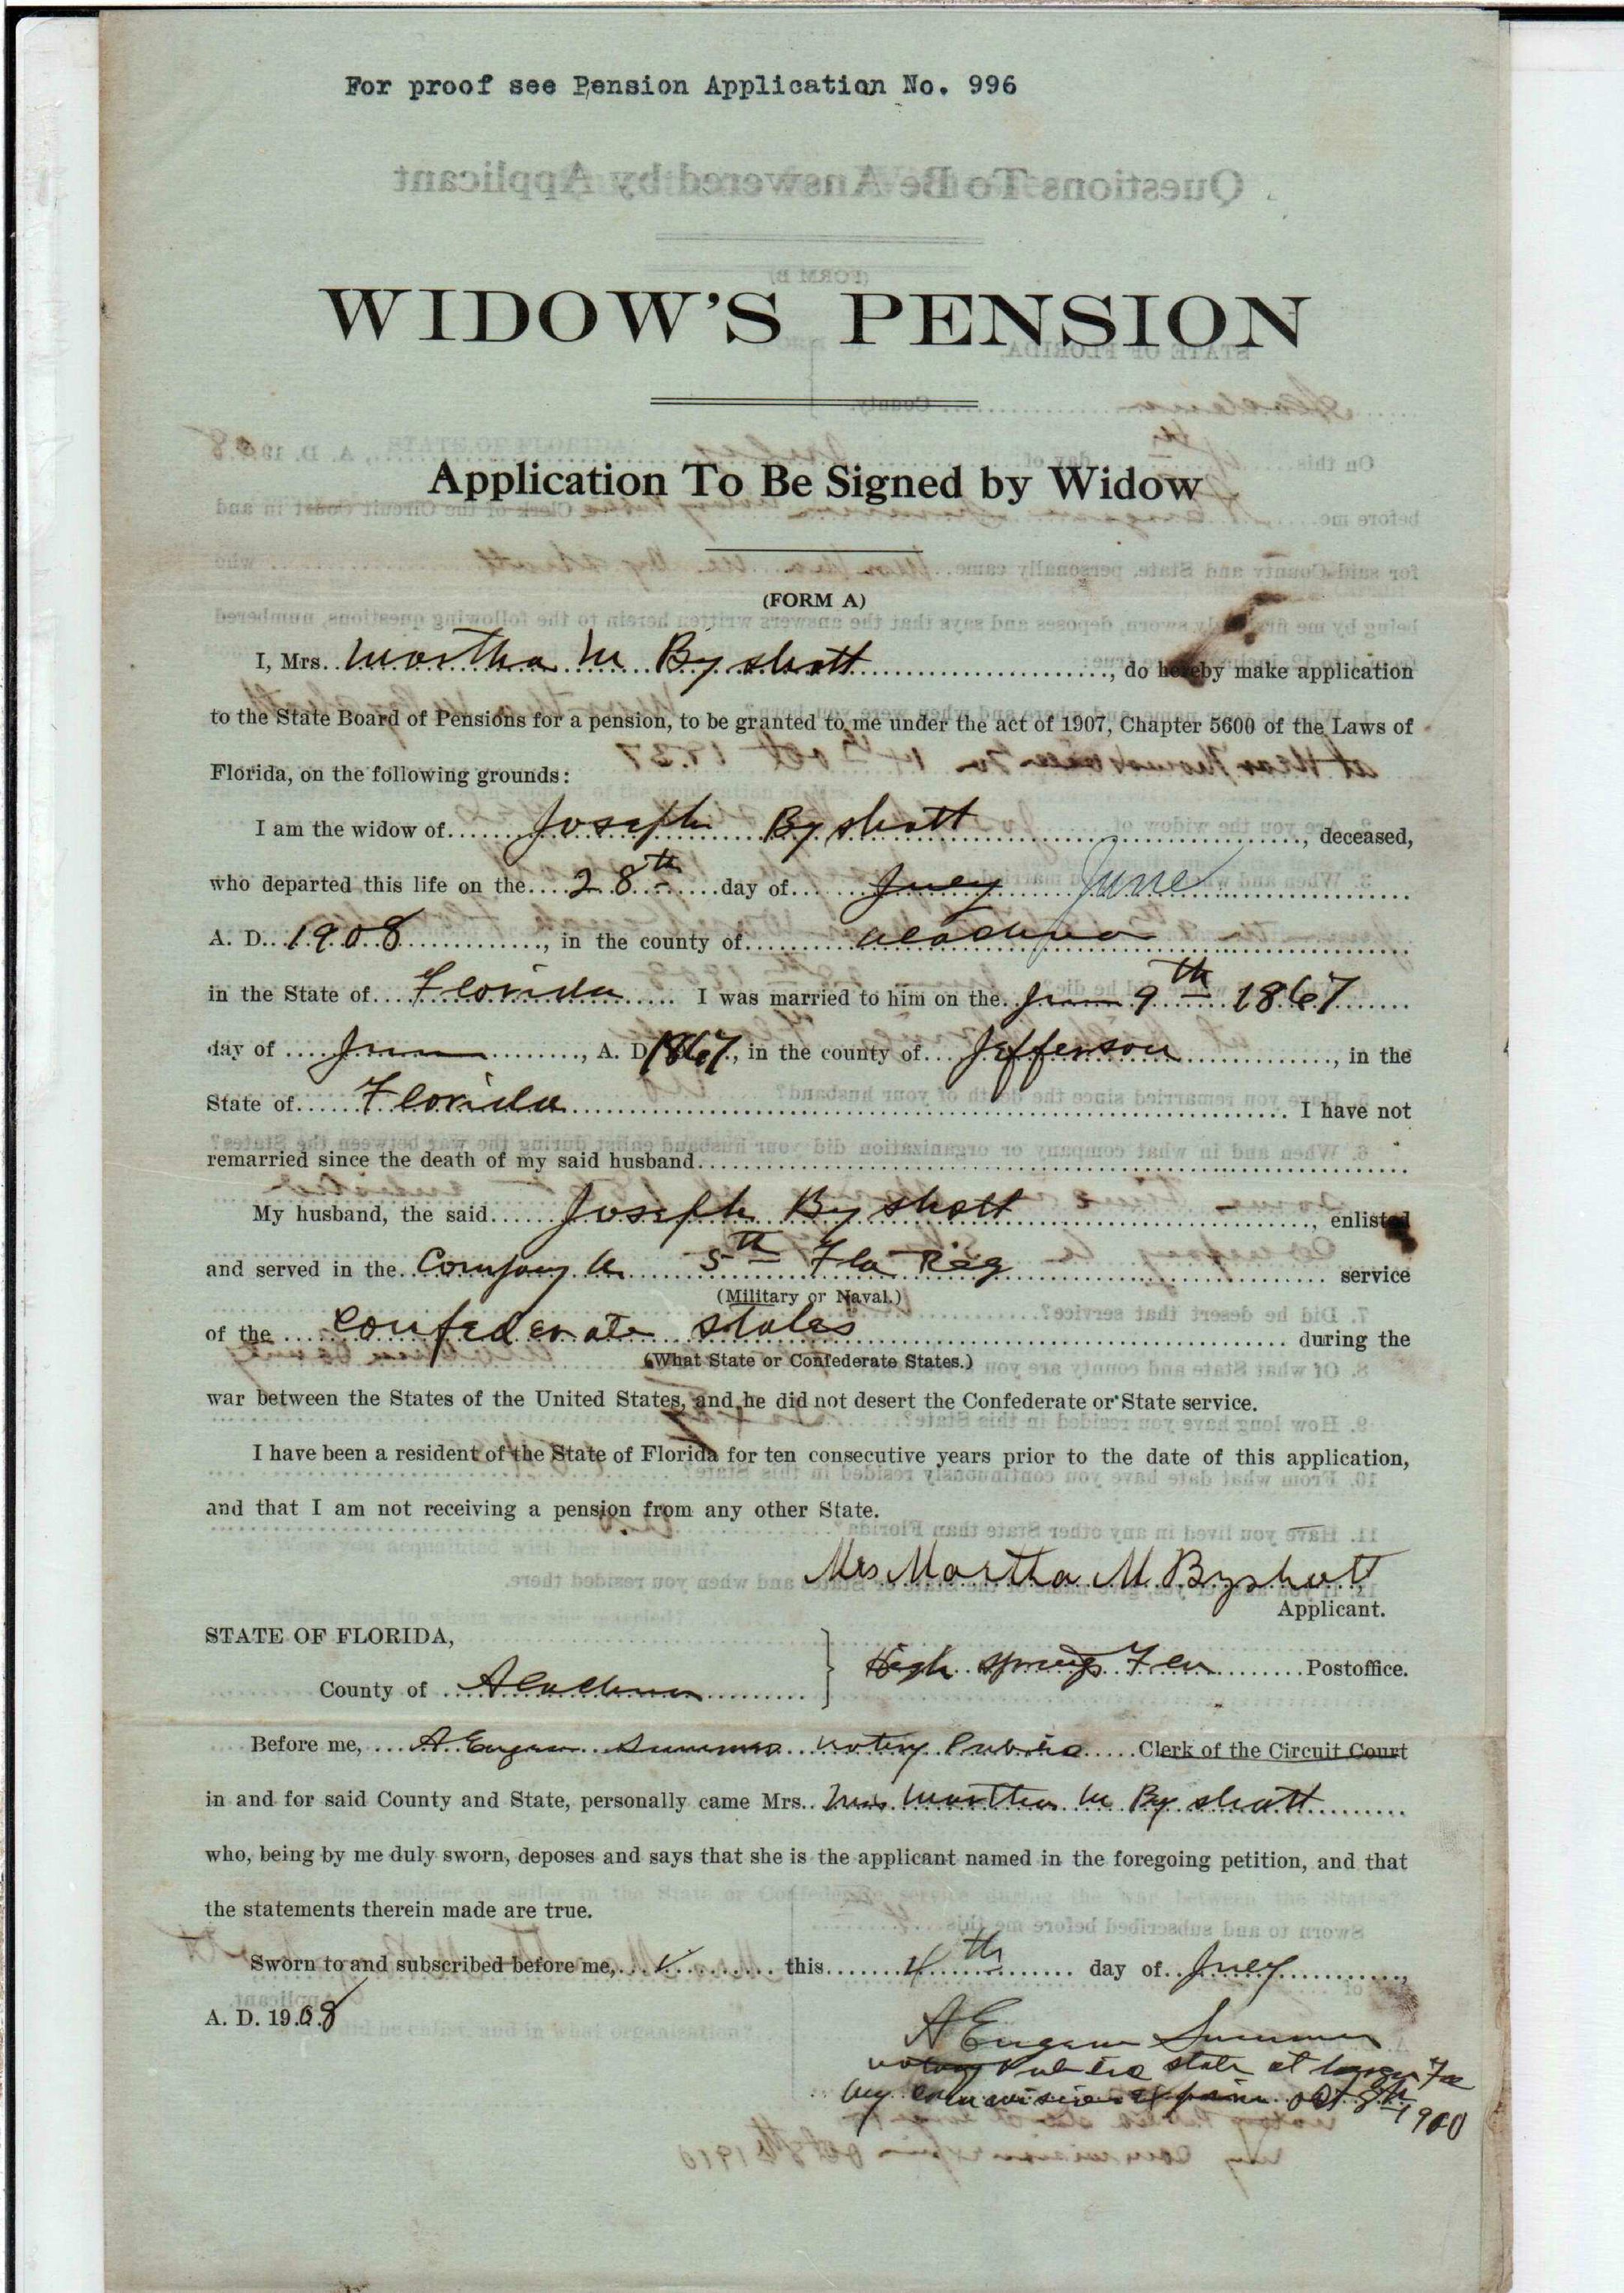 For proof see Pension Application No. 996
WIDOW'S PENSION
Application To Be Signed by Widow
(FORM A)
I, Mrs. Martha M Byshott, do hereby make application
to the State Board of Pensions for a pension, to be granted to me under the act of 1907, Chapter 5600 of the Laws of
Florida, on the following grounds:
I am the widow of Joseph Byshott, deceased,
who departed this life on the 28th day of July June
A. D. 1908, in the county of Alachua
in the State of Florida I was married to him on the June 9th 1867
day of June, A. D. 1867, in the county of Jefferson, in the
State of Florida I have not
remarried since the death of my said husband
My husband, the said Joseph Byshott, enlisted
and served in the Company 5th Fla Reg service
(Military or Naval.)
of the Confederate States during the
(What State or Confederate States.)
war between the States of the United States, and he did not desert the Confederate or State service.
I have been a resident of the State of Florida for ten consecutive years prior to the date of this application,
and that I am not receiving a pension from any other State.
Mrs Martha M. Byshott
Applicant.
STATE OF FLORIDA,
High Springs Fla Postoffice.
County of Alachua
Before me, A Eugene Summer Notary Public Clerk of the Circuit Court
in and for said County and State, personally came Mrs. Mrs Martha M Byshott
who, being by me duly sworn, deposes and says that she is the applicant named in the foregoing petition, and that
the statements therein made are true.
Sworn to and subscribed before me, this 4th day of July,
A. D. 1908
A Eugene Summer
Notary Public State at large Fla
My commission expires Oct 8th 1910